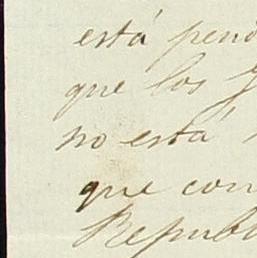 está pend
que los
no está
que con
Republ